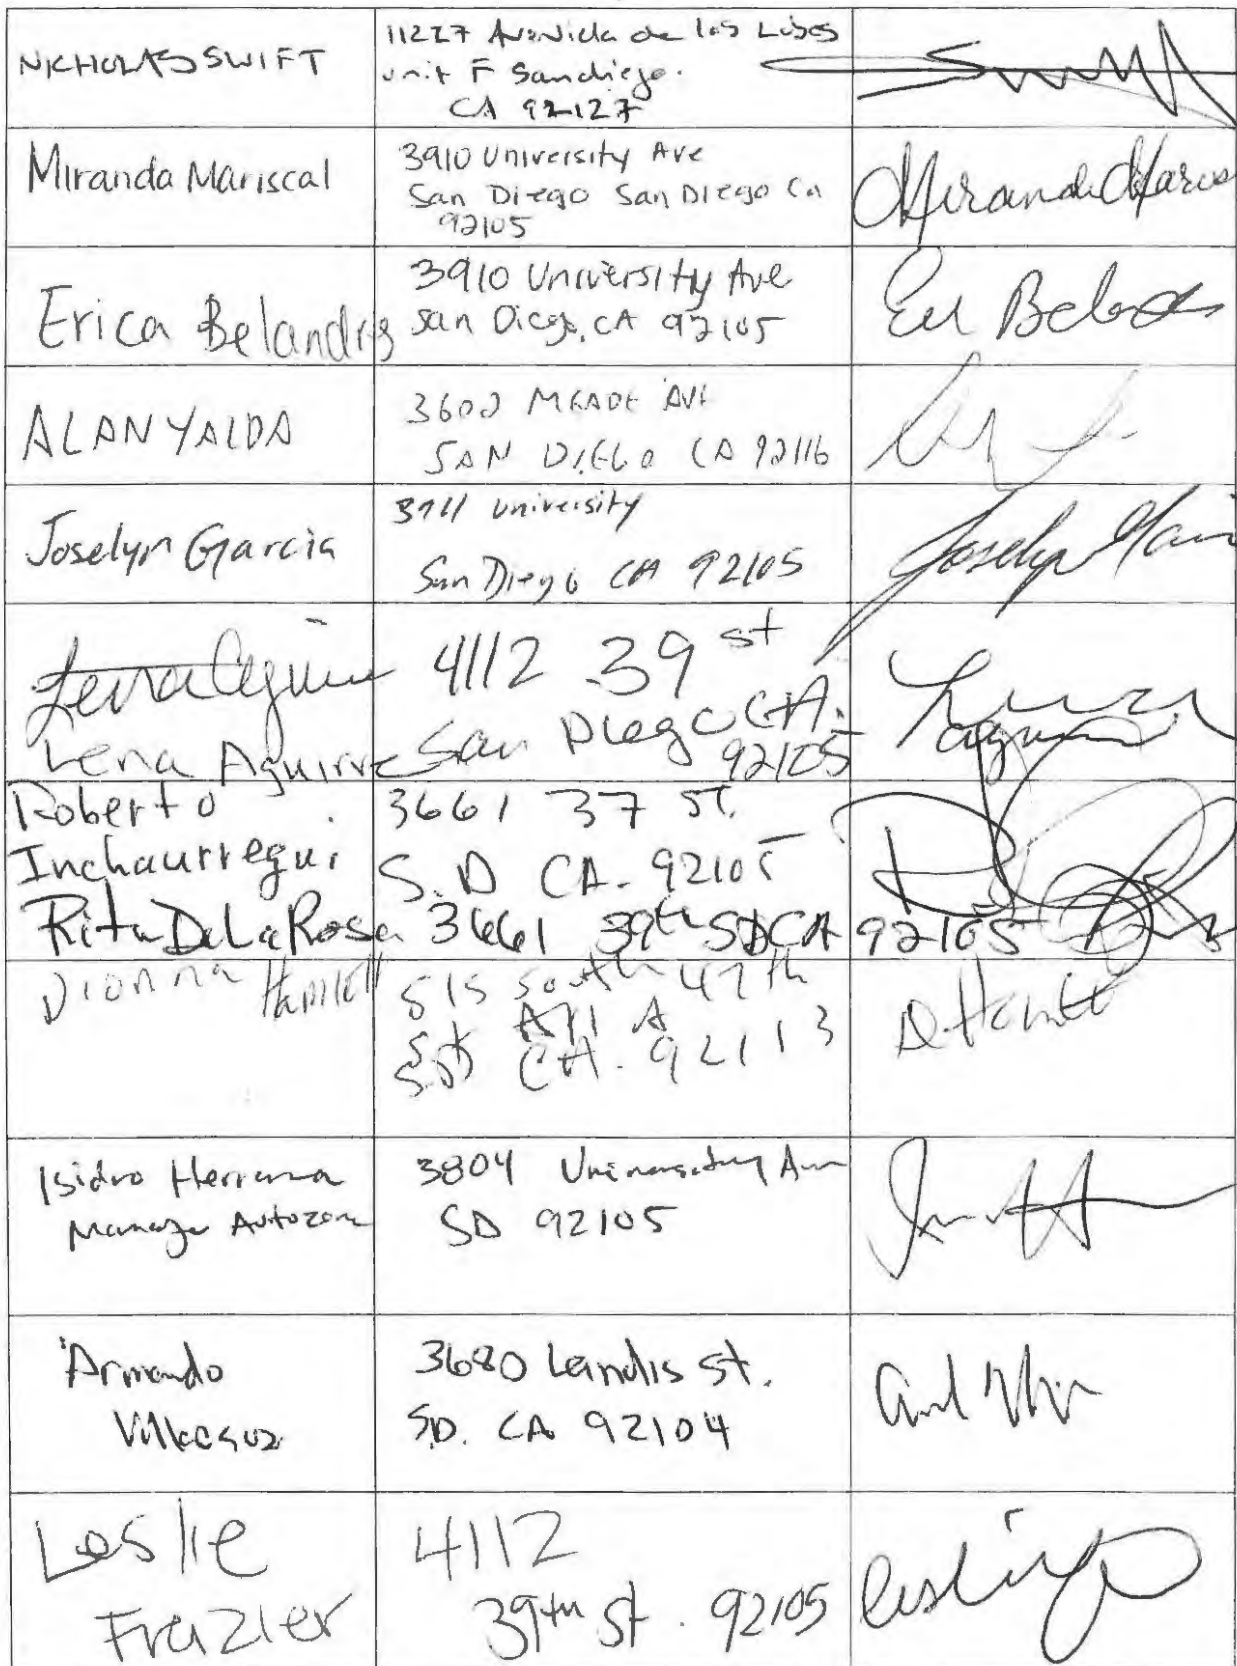 NICHOLAS SWIFT
11227 Avenida de los Lobos
unit F San diego.
CA 92127
Miranda Mariscal
3910 University Ave
San Diego San Diego Ca
92105
Miranda Maris
Erica Belandres
3910 University Ave
San Diego, CA 92105
ALAN YALDA
3602 MEADE AVE
SAN DIEGO CA 92116
Joselyn Garcia
3911 University
San Diego CA 92105
Joselyn
Lena Aguirre
4112 39 st
San Diego CA.
92105
Lena Aguirre
Roberto
Inchaurregui
3661 37 ST.
S.D CA. 92105
Rita De La Rosa 3661 39th SD CA 92105
Dionna Hamlett
515 South 47th
St Apt A
SD CA. 92113
Isidro Herrera
Manager Autozone
3804 University Ave
SD 92105
Armando
3680 Landis St.
S.D. CA 92104
Leslie
Frazier
4112
39th St. 92105